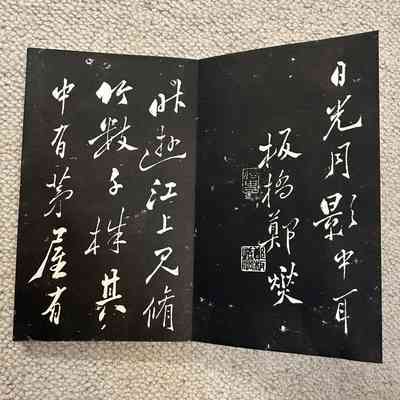 日光月影中耳
板橋鄭燮
昨遊江上見脩
竹數千株其
中有茅屋有